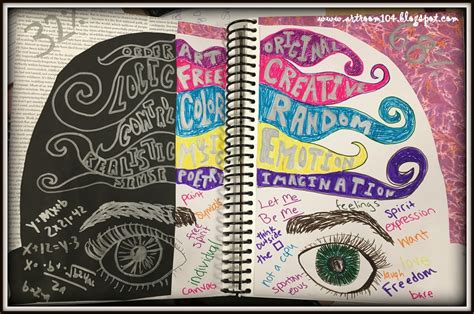 www.artroom104.blogspot.com
32%
68%
ORDER
LOGIC
CONTROL
REALISTIC
ART
FREE
COLOR
MUSIC
POETRY
ORIGINAL
CREATIVE
RANDOM
EMOTION
IMAGINATION
y=mx+b
2x21=42
paint
symbols
free
spirit
Individual
canvas
Let Me
Be Me
Think
outside
the
not a copy
spontan
eous
feelings
Spirit
expression
want
love
laugh
Freedom
bare